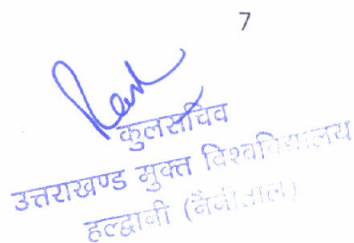 7
कुलसचिव
उत्तराखण्ड मुक्त विश्वविद्यालय
हल्द्वानी (नैनीताल)